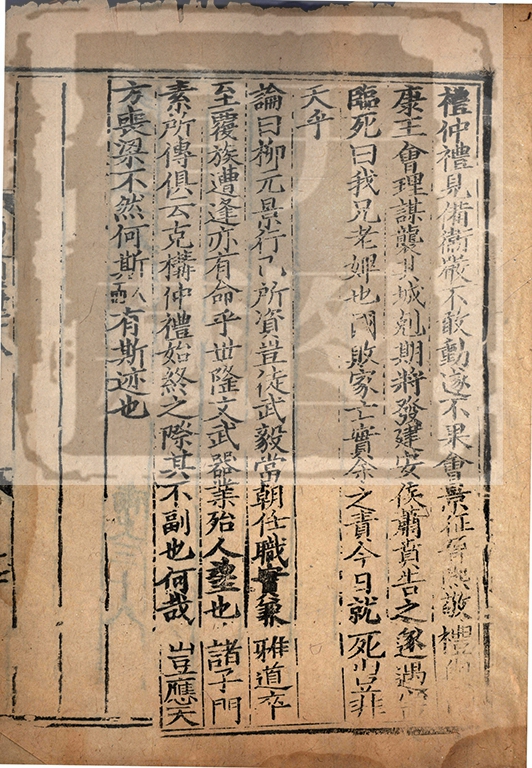 禮仲禮見備衛嚴不敢動遂不果會景征晉熙敬禮與南
康王會理謀襲其城剋期將發建安侯蕭賁告之遂遇害
臨死曰我兄老婢也國敗家亡實余之責今日就死豈非
天乎
論曰柳元景行己所資豈徒武毅當朝任職實兼雅道卒
至覆族遭逢亦有命乎世隆文武器業殆人望也諸子門
素所傳俱云克構仲禮始終之際其不副也何哉豈應天
方喪梁不然何斯人而有斯迹也